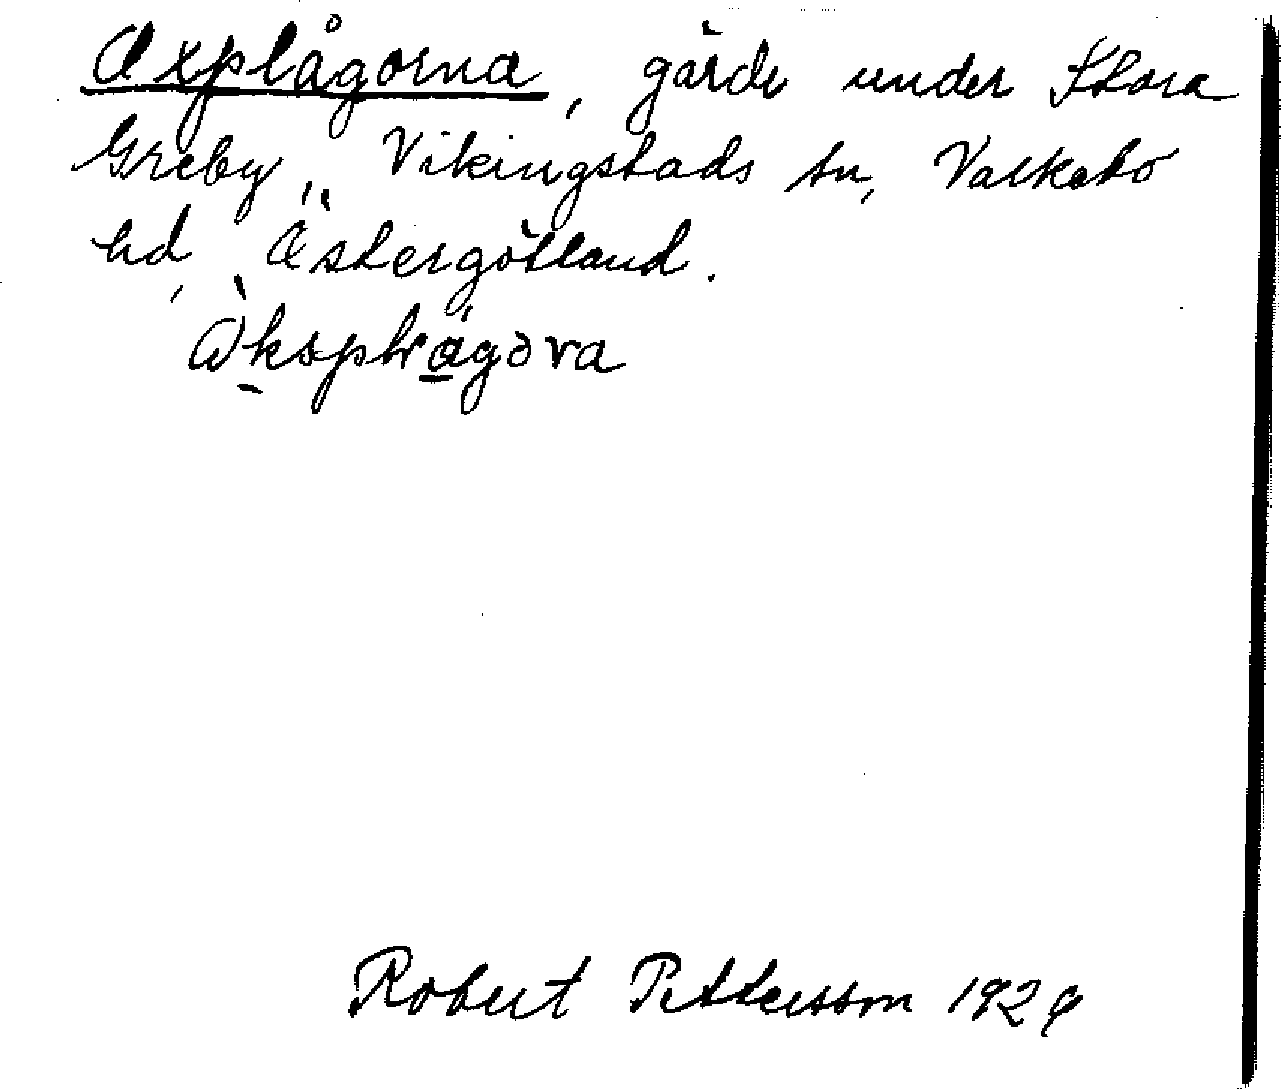 Axplågorna, gärde under Stora
Greby, Vikingstads sn, Valkebo
hd, Östergötland.
Robert Pettersson 1929